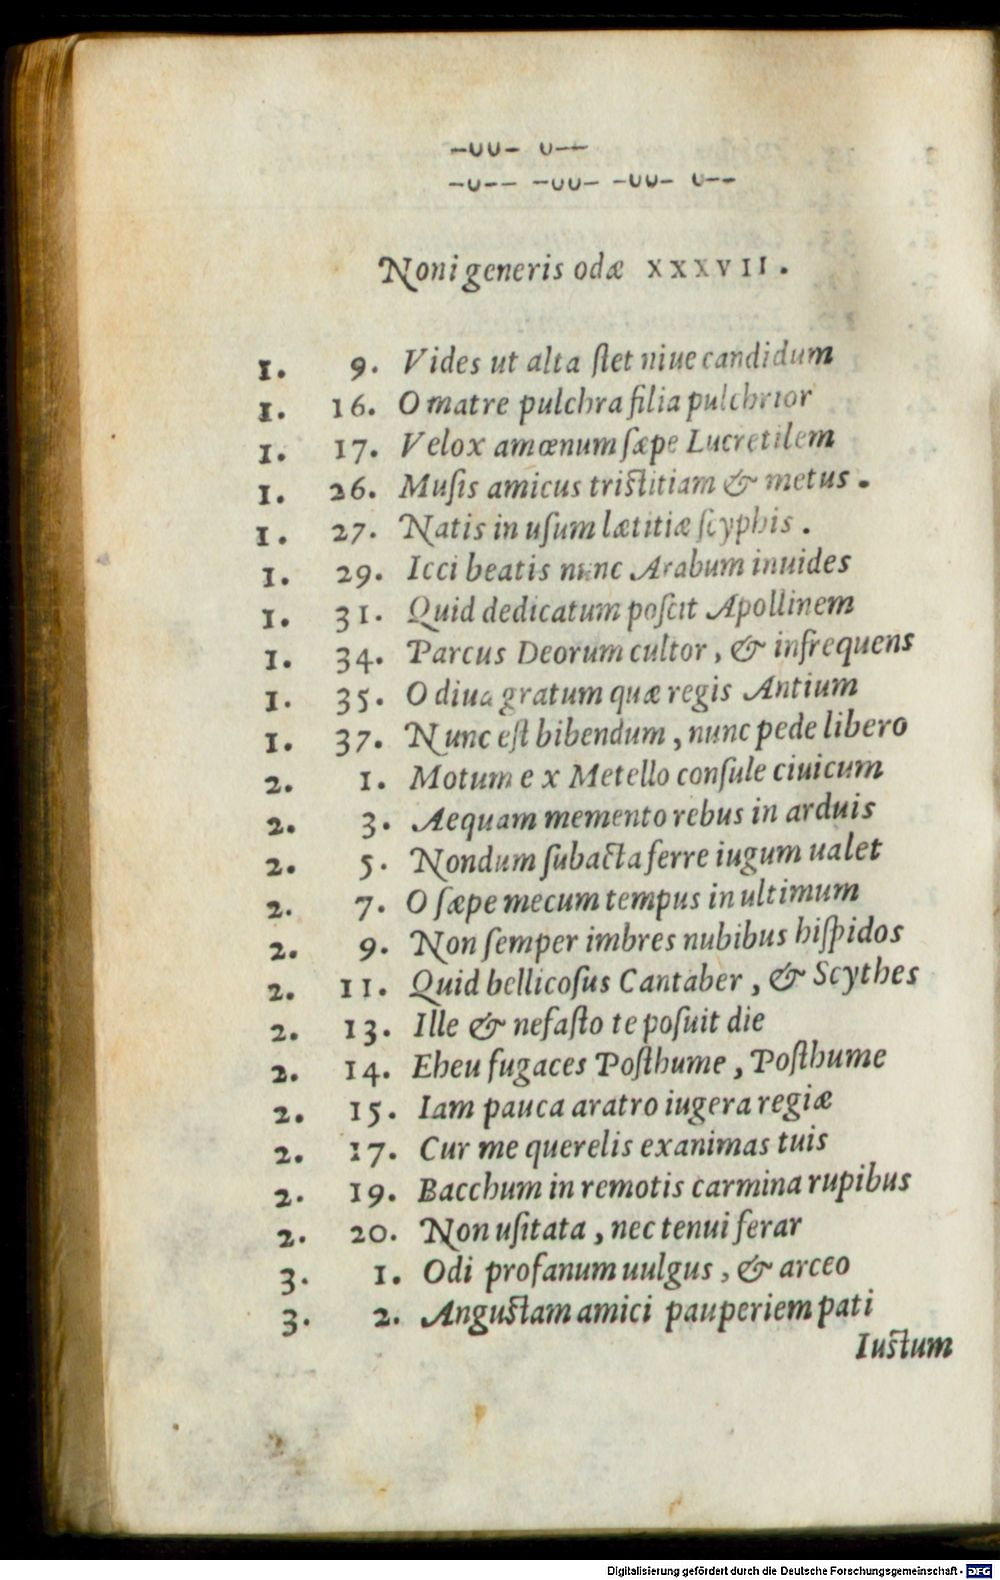 –∪∪– ∪––
–∪–– –∪∪– –∪∪– ∪––
Noni generis odæ XXXVII.
1. 9. Vides ut alta ſtet niue candidum
1. 16. O matre pulchra filia pulchrior
1. 17. Velox amœnum ſæpe Lucretilem
1. 26. Muſis amicus tristitiam & metus.
1. 27. Natis in uſum lætitiæ ſcyphis.
1. 29. Icci beatis nunc Arabum inuides
1. 31. Quid dedicatum poſcit Apollinem
1. 34. Parcus Deorum cultor, & infrequens
1. 35. O diua gratum quæ regis Antium
1. 37. Nunc eſt bibendum, nunc pede libero
2. 1. Motum e x Metello conſule ciuicum
2. 3. Aequam memento rebus in arduis
2. 5. Nondum ſubacta ferre iugum ualet
2. 7. O ſæpe mecum tempus in ultimum
2. 9. Non ſemper imbres nubibus hiſpidos
2. 11. Quid bellicoſus Cantaber, & Scythes
2. 13. Ille & nefaſto te poſuit die
2. 14. Eheu fugaces Poſthume, Poſthume
2. 15. Iam pauca aratro iugera regiæ
2. 17. Cur me querelis exanimas tuis
2. 19. Bacchum in remotis carmina rupibus
2. 20. Non uſitata, nec tenui ferar
3. 1. Odi profanum uulgus, & arceo
3. 2. Angustam amici pauperiem pati
Iustum
Digitalisierung gefördert durch die Deutsche Forschungsgemeinschaft - DFG